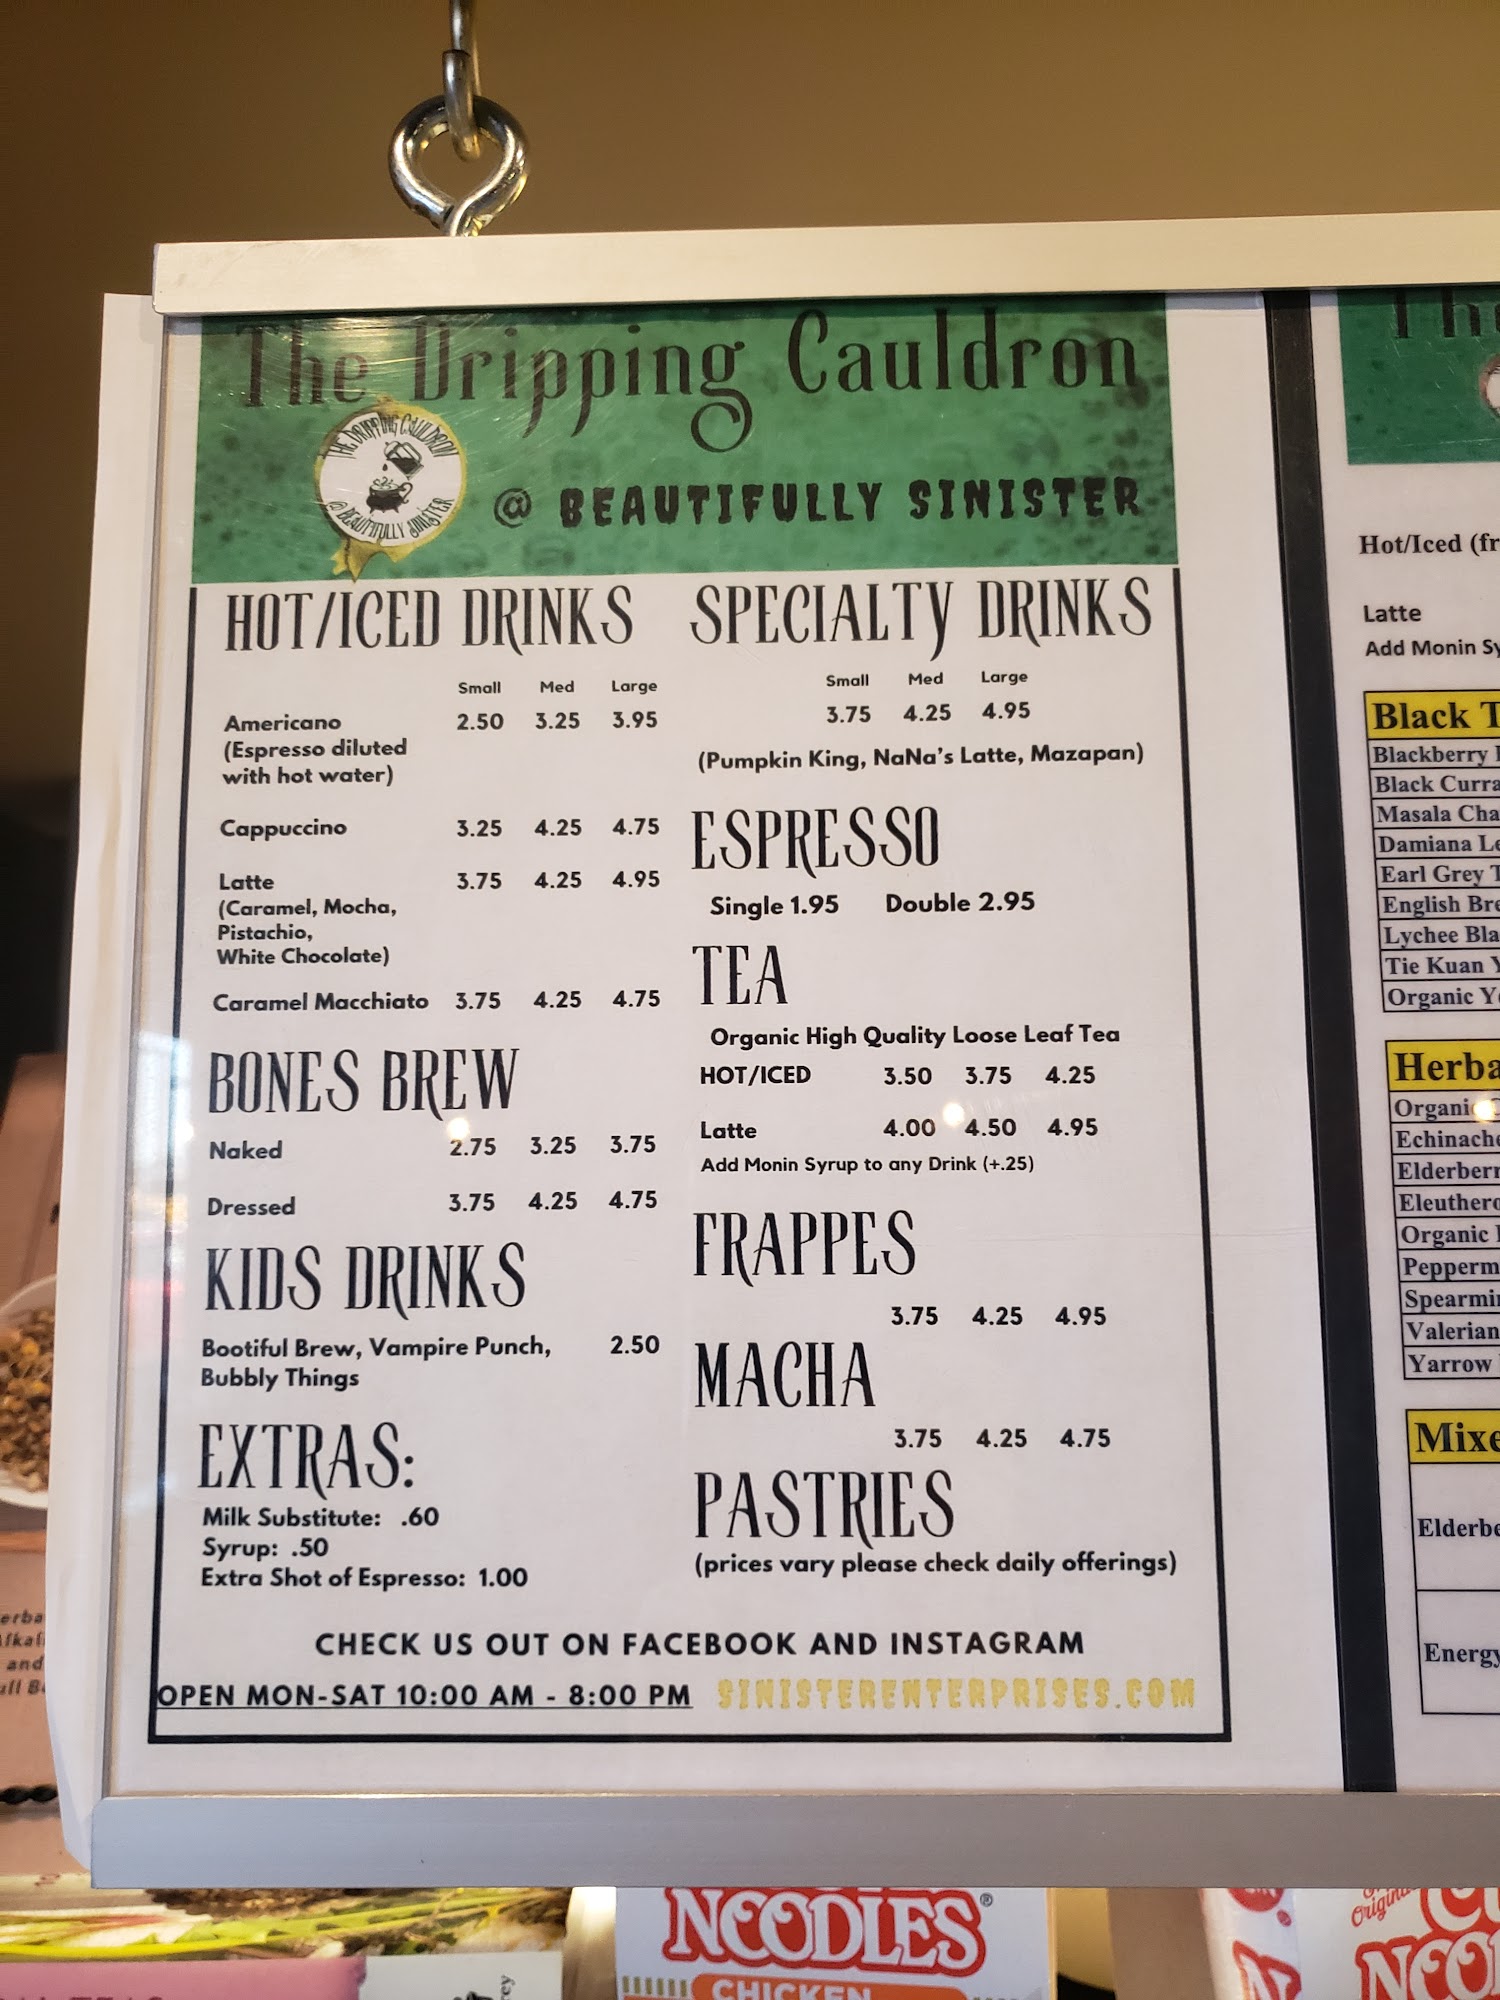 The Dripping Cauldron
THE DRIPPING CAULDRON
@ BEAUTIFULLY SINISTER
@ BEAUTIFULLY SINISTER
HOT/ICED DRINKS
Small Med Large
Americano 2.50 3.25 3.95
(Espresso diluted
with hot water)
Cappuccino 3.25 4.25 4.75
Latte 3.75 4.25 4.95
(Caramel, Mocha,
Pistachio,
White Chocolate)
Caramel Macchiato 3.75 4.25 4.75
BONES BREW
Naked 2.75 3.25 3.75
Dressed 3.75 4.25 4.75
KIDS DRINKS
Bootiful Brew, Vampire Punch, 2.50
Bubbly Things
EXTRAS:
Milk Substitute: .60
Syrup: .50
Extra Shot of Espresso: 1.00
SPECIALTY DRINKS
Small Med Large
3.75 4.25 4.95
(Pumpkin King, NaNa's Latte, Mazapan)
ESPRESSO
Single 1.95 Double 2.95
TEA
Organic High Quality Loose Leaf Tea
HOT/ICED 3.50 3.75 4.25
Latte 4.00 4.50 4.95
Add Monin Syrup to any Drink (+.25)
FRAPPES
3.75 4.25 4.95
MACHA
3.75 4.25 4.75
PASTRIES
(prices vary please check daily offerings)
CHECK US OUT ON FACEBOOK AND INSTAGRAM
OPEN MON-SAT 10:00 AM - 8:00 PM SINISTERENTERPRISES.COM
Hot/Iced
Latte
Add Monin
Black
Blackberry
Black
Masala
Damiana
Earl Grey
English
Lychee
Tie Kuan
Organic
Organic
Organic
Yarrow
and
NOODLES®
CHICKEN